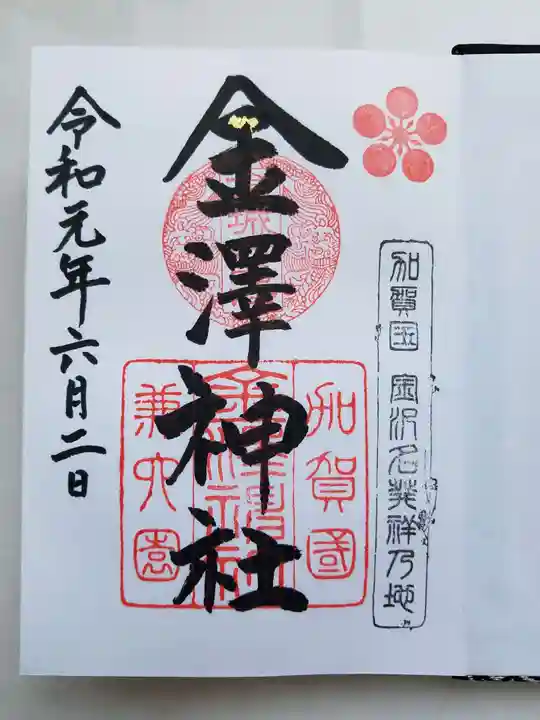 加賀国 金沢名発祥乃地
金澤神社
加賀國
金澤神社
兼六園
令和元年六月二日